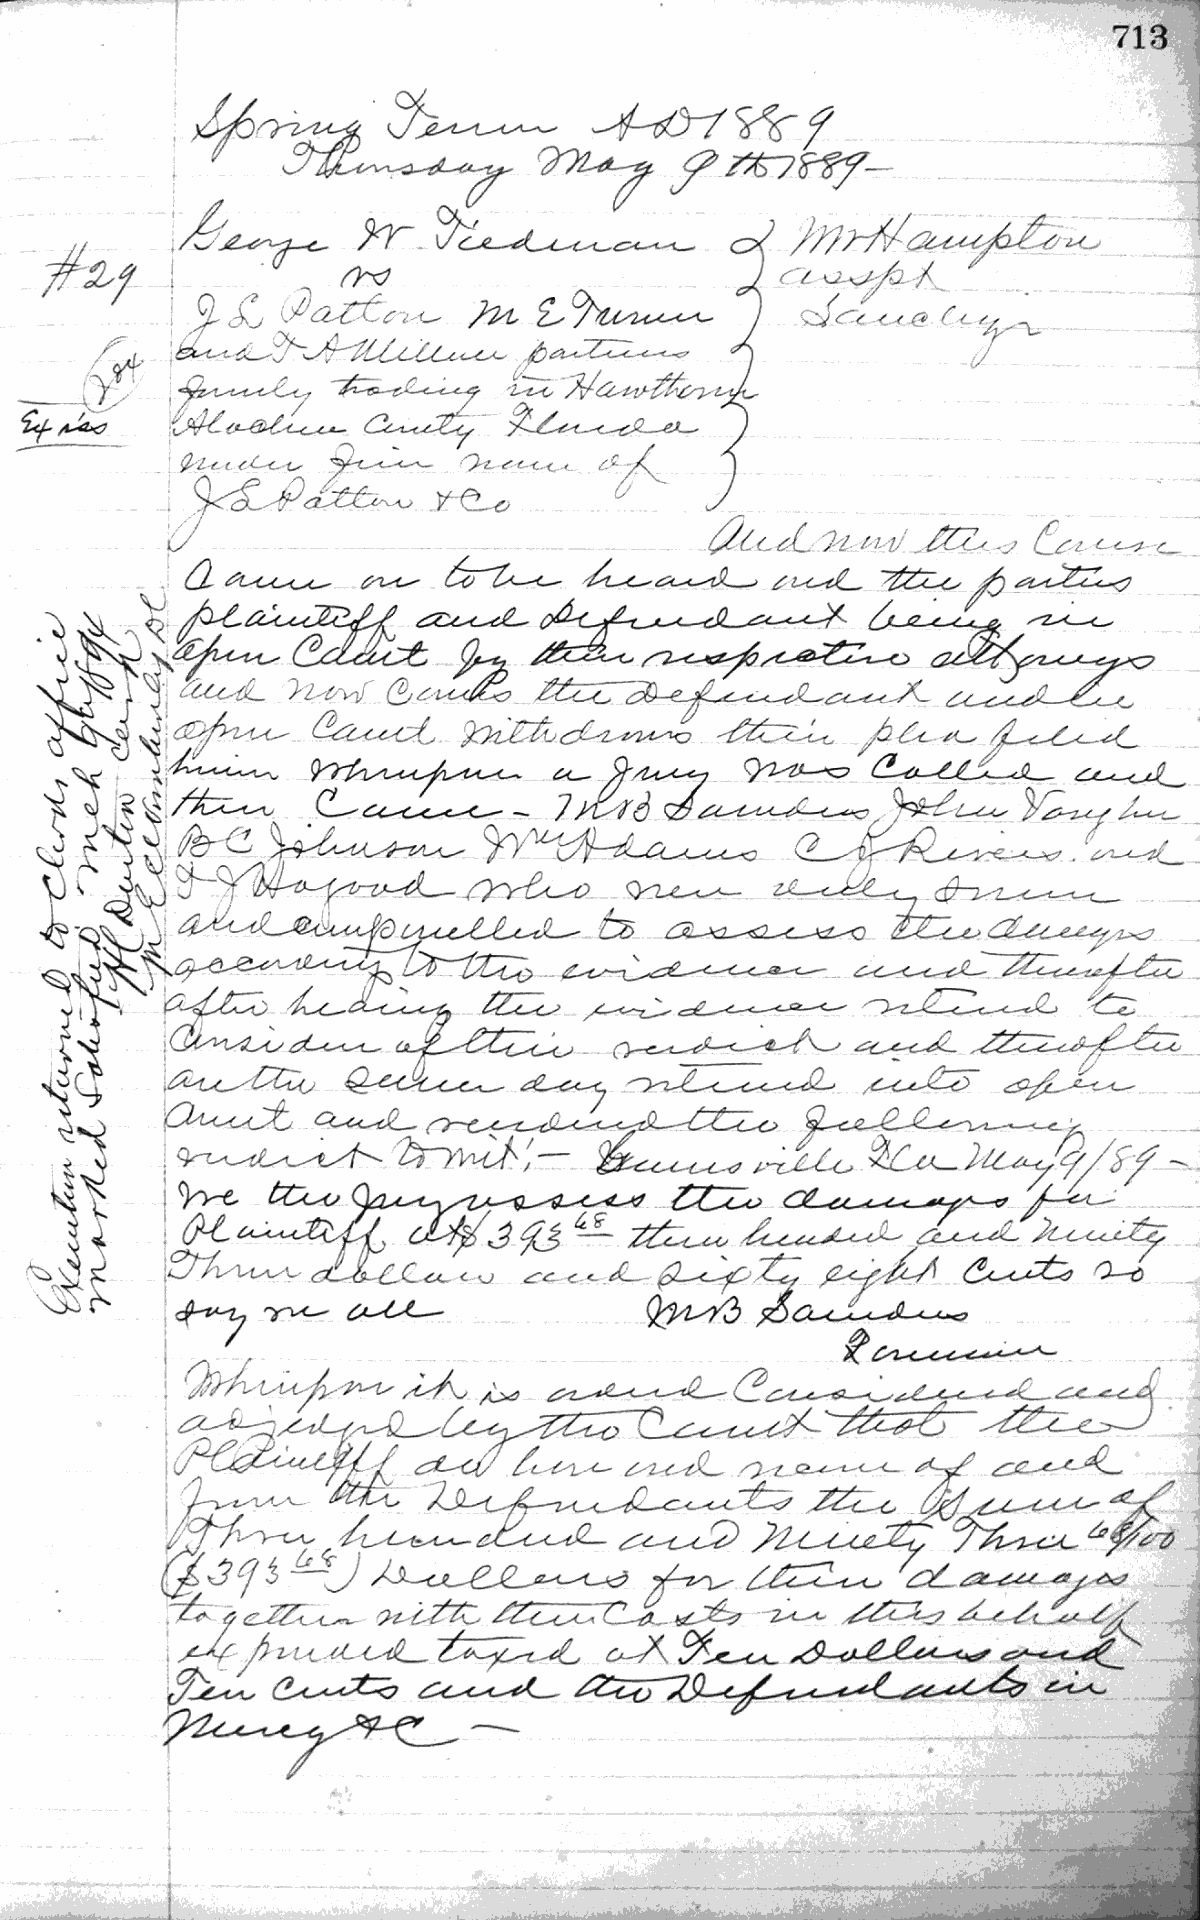 713
Spring Term AD 1889
Thursday May 9th 1889-
George W Tiedman Mr Hampton
#29
vs asspt
J S Patton M E Turner
and T A Miller partners
formerly trading in Hawthorne
Ex iss
Alachua County Florida
under firm name of
J S Patton & Co
And now this Cause
Came on to be heard and the parties
plaintiff and Defendant being in
open Court by their respective attorneys
and now comes the Defendant and in
open Court withdraws their plea filed
herein Whereupon a Jury was Called and
then Came - M B Saunders John Vaughn
B C Johnson Wm Adams C J Rivers and
T J Hagood who were duly sworn
and empanelled to assess the damages
according to the evidence and thereafter
after hearing the evidence retired to
Consider of their verdict and thereafter
on the same day retired into open
Court and rendered the following
verdict to wit:- Gainesville Fla May 9/89-
We the Jury assess the damages for
Plaintiff at $393 68 three hundred and Ninety
Three dollars and Sixty eight Cents so
say we all M B Saunders
Foreman
Whereupon it is and Considered and
adjudged by the Court that the
Plaintiff do have and of and
from the Defendants the Sum of
Three hundred and Ninety Three 68/100
($393 68) Dollars for their damages
together with their Costs in this behalf
expended taxed at Ten Dollars and
Ten Cents and the Defendants in
Mercy &C -
Execution returned to Clerks office
marked Satisfied